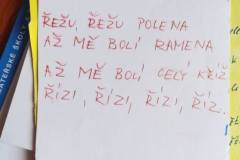 ŘEŽU, ŘEŽU POLENA
AŽ MĚ BOLÍ RAMENA
AŽ MĚ BOLÍ CELÝ KŘÍŽ
ŘÍZI, ŘÍZI, ŘÍZI, ŘÍZ.
ATEŘSKÉ ŠKOL